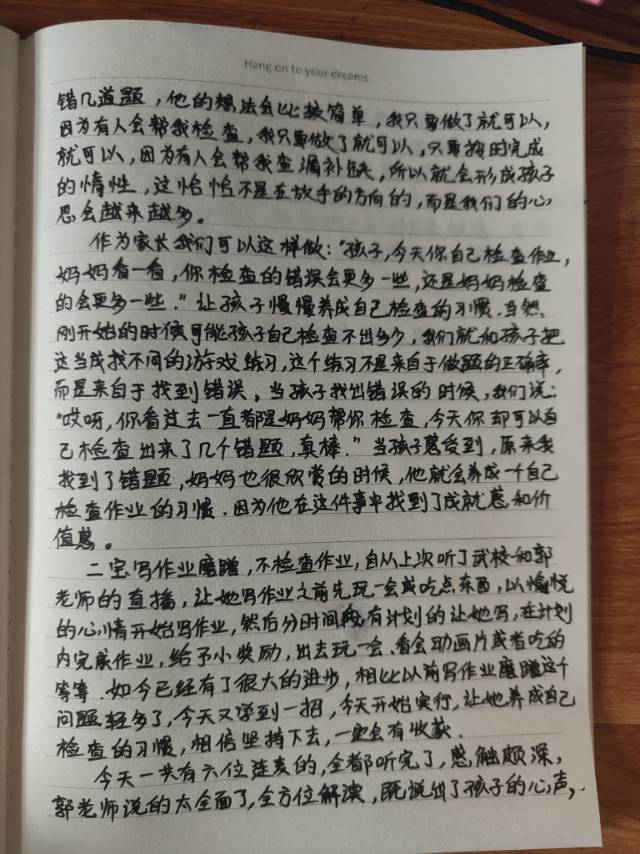 Hang on to your dreams
错几道题，他的想法会比较简单，我只要做了就可以，
因为有人会帮我检查，我只要做了就可以，只要按时完成
就可以，因为有人会帮我查漏补缺，所以就会形成孩子
的惰性，这恰恰不是在放手的方向的，而是我们的心
思会越来越多。
作为家长我们可以这样做："孩子，今天你自己检查作业，
妈妈看一看，你检查的错误会更多一些，还是妈妈检查
的会更多一些。"让孩子慢慢养成自己检查的习惯．当然，
刚开始的时候可能孩子自己检查不出多少，我们就和孩子把
这当成找不同的游戏练习，这个练习不是来自于做题的正确率，
而是来自于找到错误。当孩子找出错误的时候，我们说：
"哎呀，你看过去一直都是妈妈帮你检查，今天你却可以自
己检查出来了几个错题，真棒．"当孩子感受到，原来我
找到了错题，妈妈也很欣赏的时候，他就会养成一个自己
检查作业的习惯．因为他在这件事中找到了成就感和价
值感。
二宝写作业磨蹭，不检查作业，自从上次听了武校和郭
老师的直播，让她写作业之前先玩一会或吃点东西，以愉悦
的心情开始写作业，然后分时间，有计划的让她写，在计划
内完成作业，给予小奖励，出去玩一会．看会动画片或者吃的
等等．如今已经有了很大的进步，相比以前写作业磨蹭这个
问题轻多了，今天又学到一招，今天开始实行，让她养成自己
检查的习惯，相信坚持下去，一定会有收获．
今天一共有六位连麦的，全都听完了，感触颇深，
郭老师说的太全面了，全方位解读，既说出了孩子的心声，